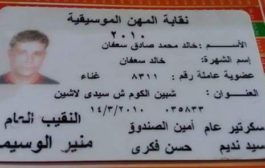 نقابة المهن الموسيقية
٢٠١٠
الأســم : خالد محمد صادق سعفان
إسم الشهرة : خالد سعفان
عضوية عاملة رقم : ٨٣١١ غناء
العنـوان : شبين الكوم ش سيدى لاشين
٠٣٥٨٣٣ ١٤/٣/٢٠١٠
سكرتير عام أمين الصندوق النقيب العام
سيد نديم حسن فكرى منير الوسيمى